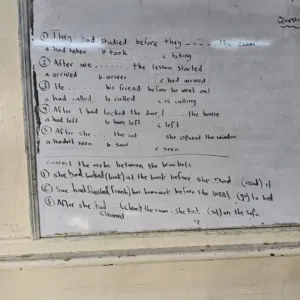 Quest
① They had studied before they ---- the exam
a. had taken b. took c. taking
② After we ....... the lesson started
a. arrived b. arrive c. had arrived
③ He ...... his friend before he went out
a. had called b. called c. is calling
④ After I had locked the door, I ..... the house
a. had left b. have left c. left
⑤ After she ... the cat she opened the window
a. hadn't seen b. saw
c. seen
correct the verbs between the brackets
① she had looked (look) at the book before she read (read) it
② She had finished (finish) her homework before she went (go) to bed
③ After she had (clean) the room, she sat (sit) on the sofa
cleaned